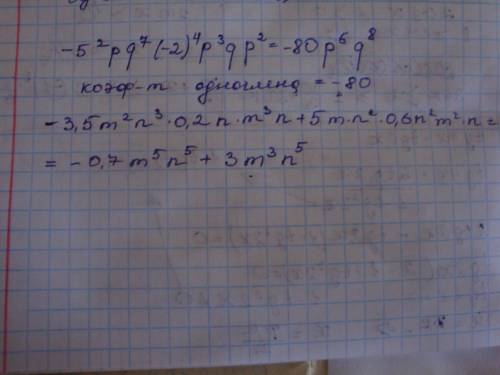 -5² p q⁷ (-2)⁴ p³ q p² = -80 p⁶ q⁸
коэф-т одночлена = -80
-3,5 m² n³ · 0,2 n · m³ n + 5 m · n² · 0,6 n² m² · n =
= -0,7 m⁵ n⁵ + 3 m³ n⁵